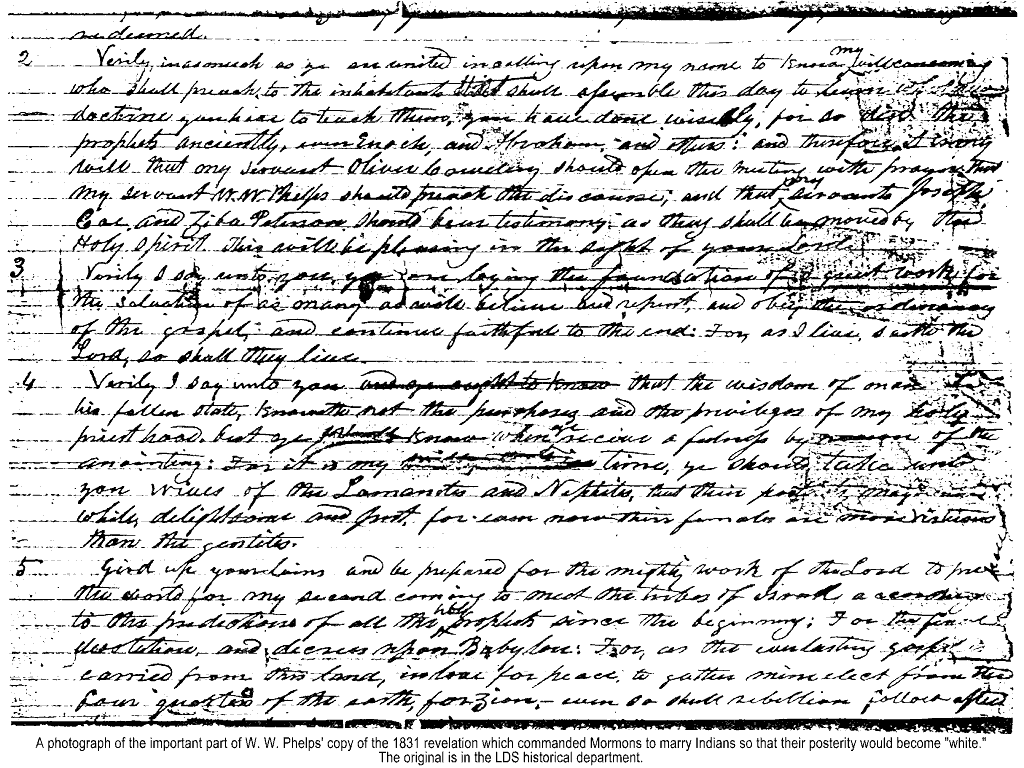 redeemed.
2 Verily, inasmuch as ye are united in calling upon my name to know my will concerning
who shall preach to the inhabitants that shall assemble this day to learn what new
doctrine you have to teach them, you have done wisely, for so did the
prophets anciently, even Enoch, and Abraham, and others: and therefore, it is my
will that my servant Oliver Cowdery should open the meeting with prayer; that
my servant W. W. Phelps should preach the discourse; and that my servants Joseph
Coe and Ziba Peterson should bear testimony as they shall be moved by the
Holy Spirit. This will be pleasing in the sight of your Lord.
3 Verily I say unto you, ye are laying the foundation of a great work for
the salvation of as many as will believe and repent, and obey the ordinances
of the gospel, and continue faithful to the end: For, as I live, saith the
Lord, so shall they live.
4 Verily I say unto you and ye ought to know that the wisdom of man in
his fallen state, knoweth not the purposes and the privileges of my holy
priesthood. but ye know when ye receive a fulness by reason of the
anointing: For it is my time, ye should take unto
you wives of the Lamanites and Nephites, that their posterity may become
white, delightsome and just, for even now their females are more virtuous
than the gentiles.
5 Gird up your loins and be prepared for the mighty work of the Lord to prepare
the world for my second coming to meet the tribes of Israel according
to the predictions of all the holy prophets since the beginning; For the final
desolation, and decrees upon Babylon: For, as the everlasting gospel is
carried from this land, in love for peace, to gather mine elect from the
four quarters of the earth, for Zion,— even so shall rebellion follow after
A photograph of the important part of W. W. Phelps' copy of the 1831 revelation which commanded Mormons to marry Indians so that their posterity would become "white."
The original is in the LDS historical department.